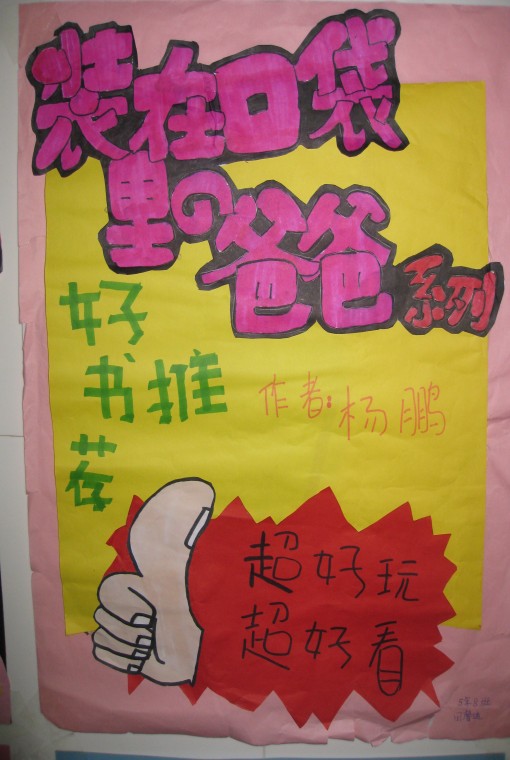 装在口袋
里の爸爸系列
好
书推
荐
作者:杨鹏
超好玩
超好看